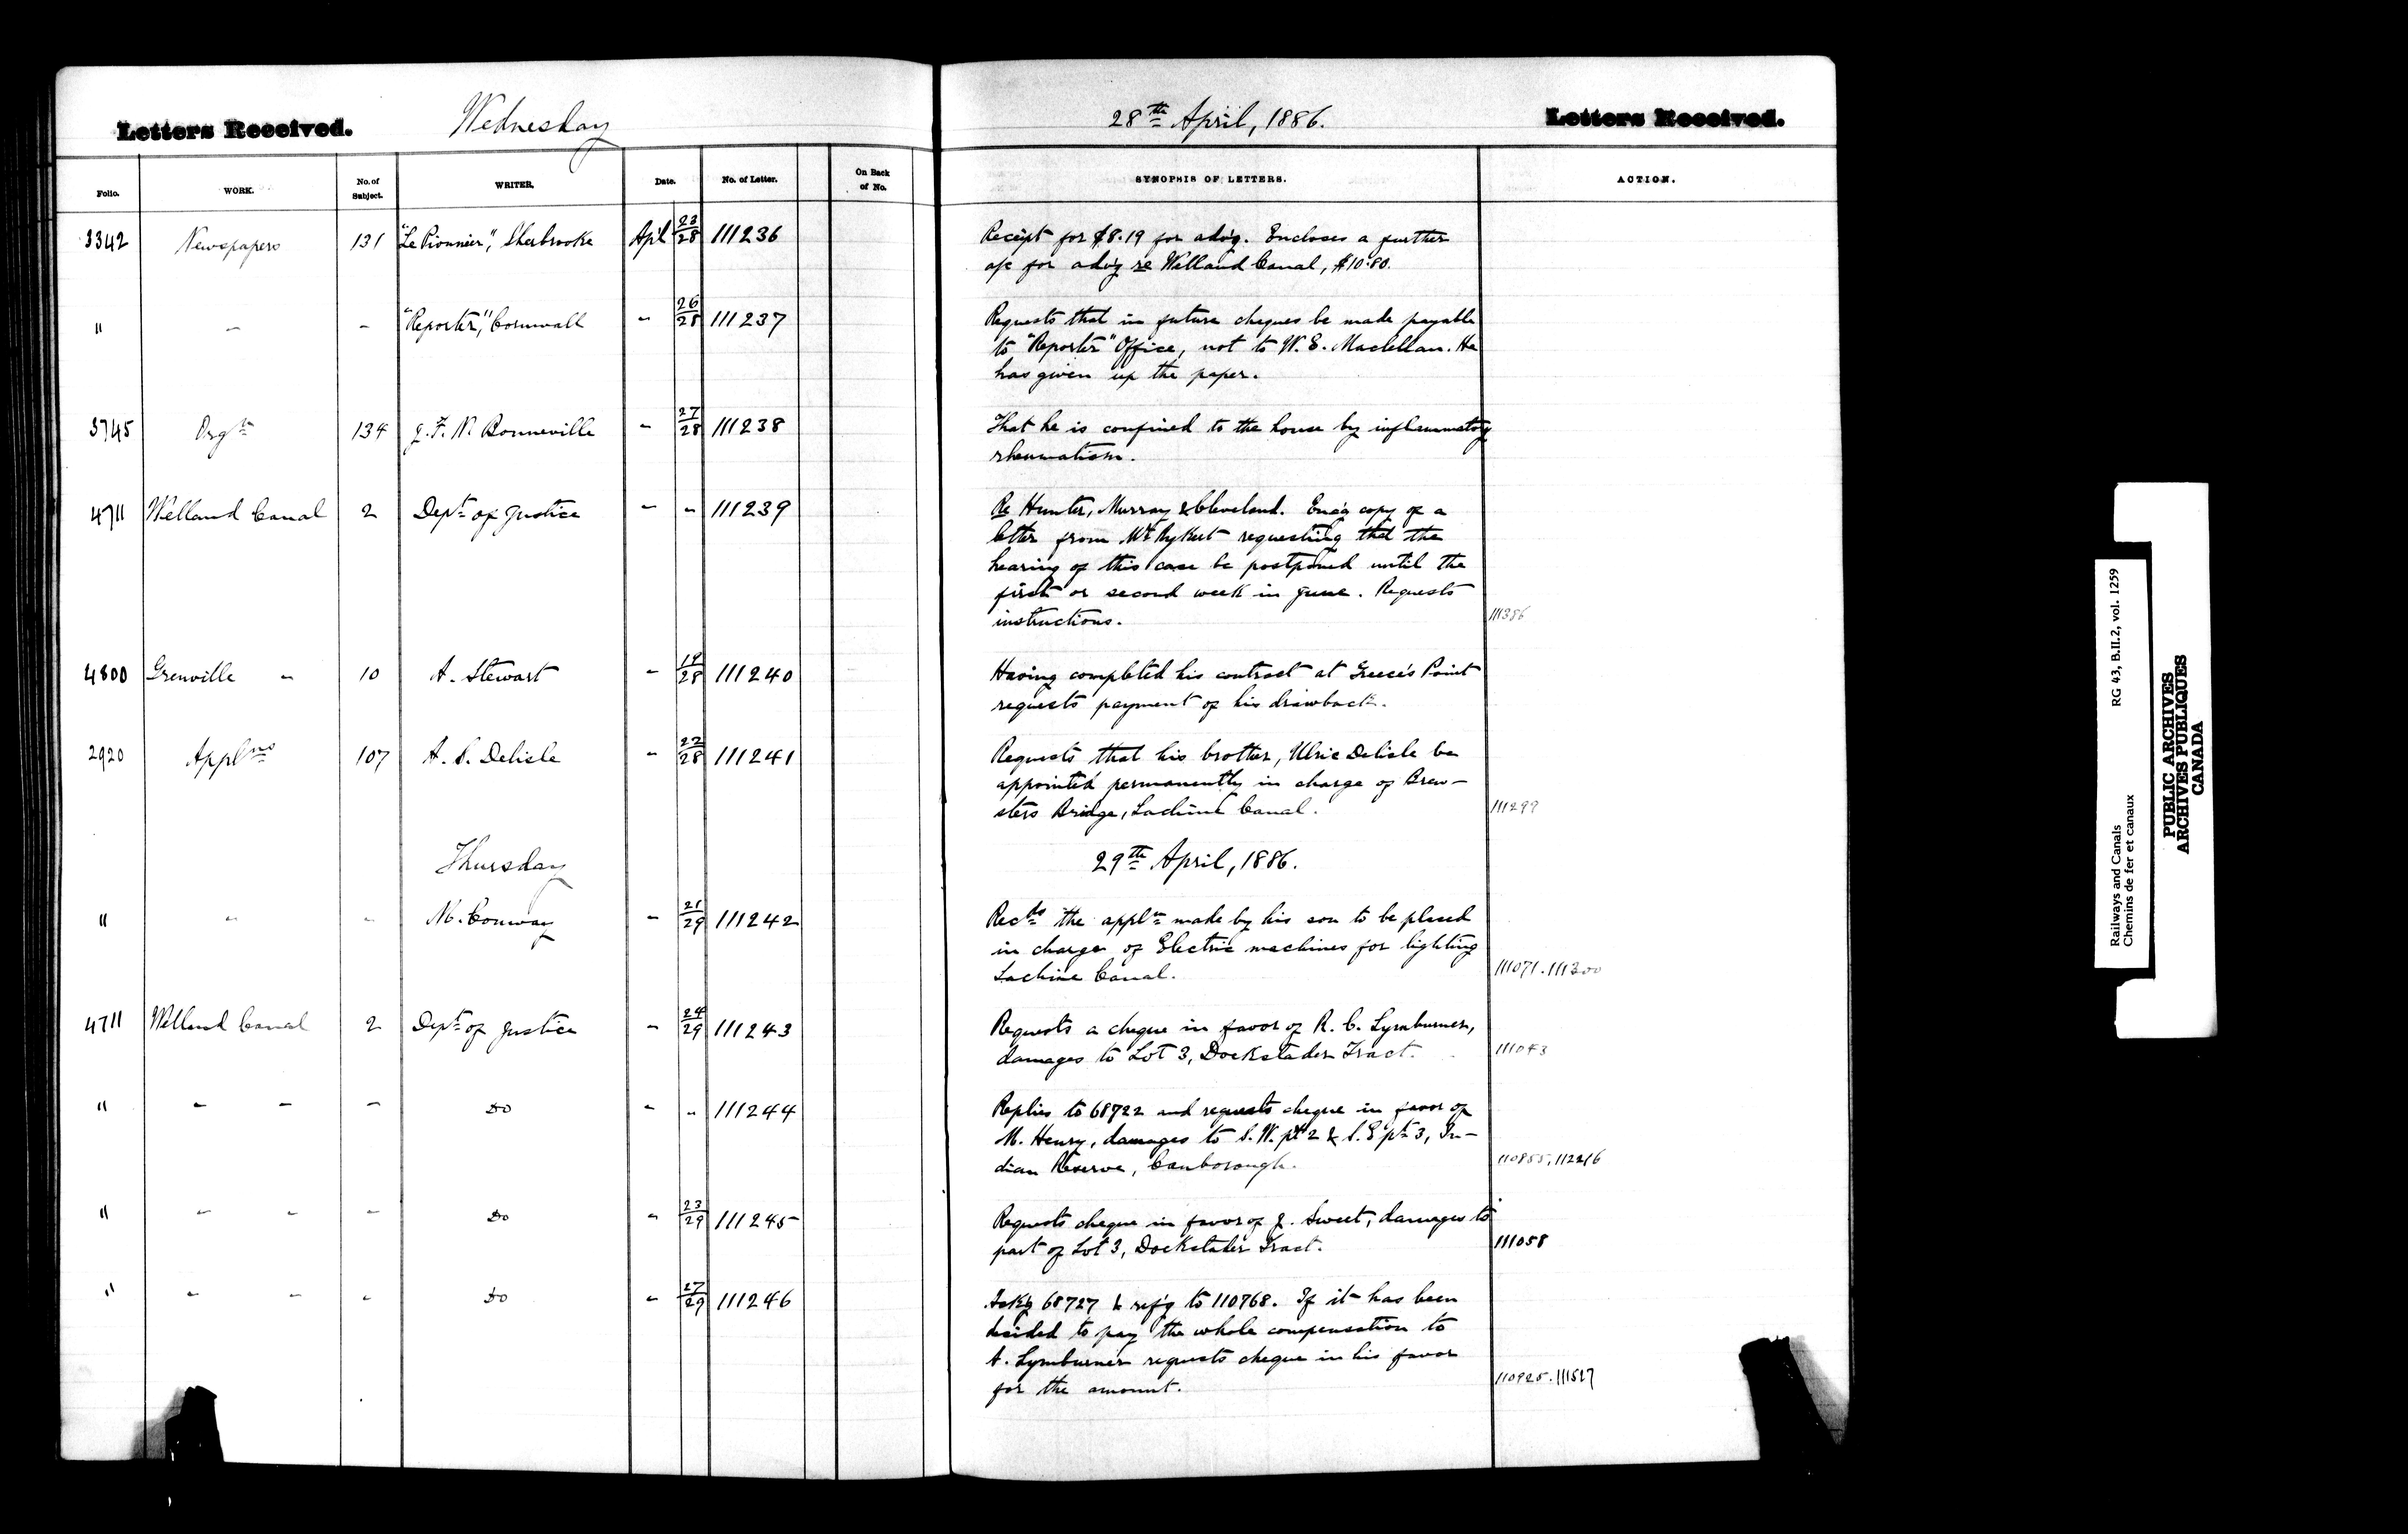 Letters Received. Wednesday 28th April, 1886. Letters Received.
Folio. WORK. No. of Subject. WRITER. Date. No. of Letter. On Back of No. SYNOPSIS OF LETTERS. ACTION.
3342 Newspapers 131 "Le Pionnier", Sherbrooke Apl 23/28 111236 Receipt for $8.19 for adv'g. Encloses a further
a/c for adv'g re Welland Canal, $10.80.
" " " "Reporter," Cornwall " 26/28 111237 Requests that in future cheques be made payable
to "Reporter" Office, not to W. E. Maclellan. He
has given up the paper.
3745 Orgn 134 J. F. N. Bonneville " 27/28 111238 That he is confined to the house by inflammatory
rheumatism.
4711 Welland Canal 2 Dept of Justice " " 111239 Re Hunter, Murray & Cleveland. Enc'g copy of a
letter from Mr Rykert requesting that the
hearing of this case be postponed until the
first or second week in June. Requests
instructions. 111386
4800 Grenville " 10 A. Stewart " 19/28 111240 Having completed his contract at Greece's Point
requests payment of his drawback.
2920 Applns 107 A. S. Delisle " 22/28 111241 Requests that his brother, Ulric Delisle be
appointed permanently in charge of Brew-
sters Bridge, Lachine Canal. 111299
Thursday 29th April, 1886.
" " " M. Conway " 21/29 111242 Recds the appln made by his son to be placed
in charge of Electric machines for lighting
Lachine Canal. 111071. 111300
4711 Welland Canal 2 Dept of Justice " 24/29 111243 Requests a cheque in favor of R. C. Lymburner,
damages to Lot 3, Dockstader Tract. 111043
" " " " Do " " 111244 Replies to 68722 and requests cheque in favor of
M. Henry, damages to S. W. pt 2 & S. E pt 3, In-
dian Reserve, Canborough. 110855, 112216
" " " " Do " 23/29 111245 Requests cheque in favor of J. Sweet, damages to
part of Lot 3, Dockstader Tract. 111058
" " " " Do " 27/29 111246 Ack'g 68727 & ref'g to 110768. If it has been
decided to pay the whole compensation to
A. Lymburner requests cheque in his favor
for the amount. 110925. 111517
Railways and Canals RG 43, B.II.2, vol. 1259
Chemins de fer et canaux
PUBLIC ARCHIVES
ARCHIVES PUBLIQUES
CANADA